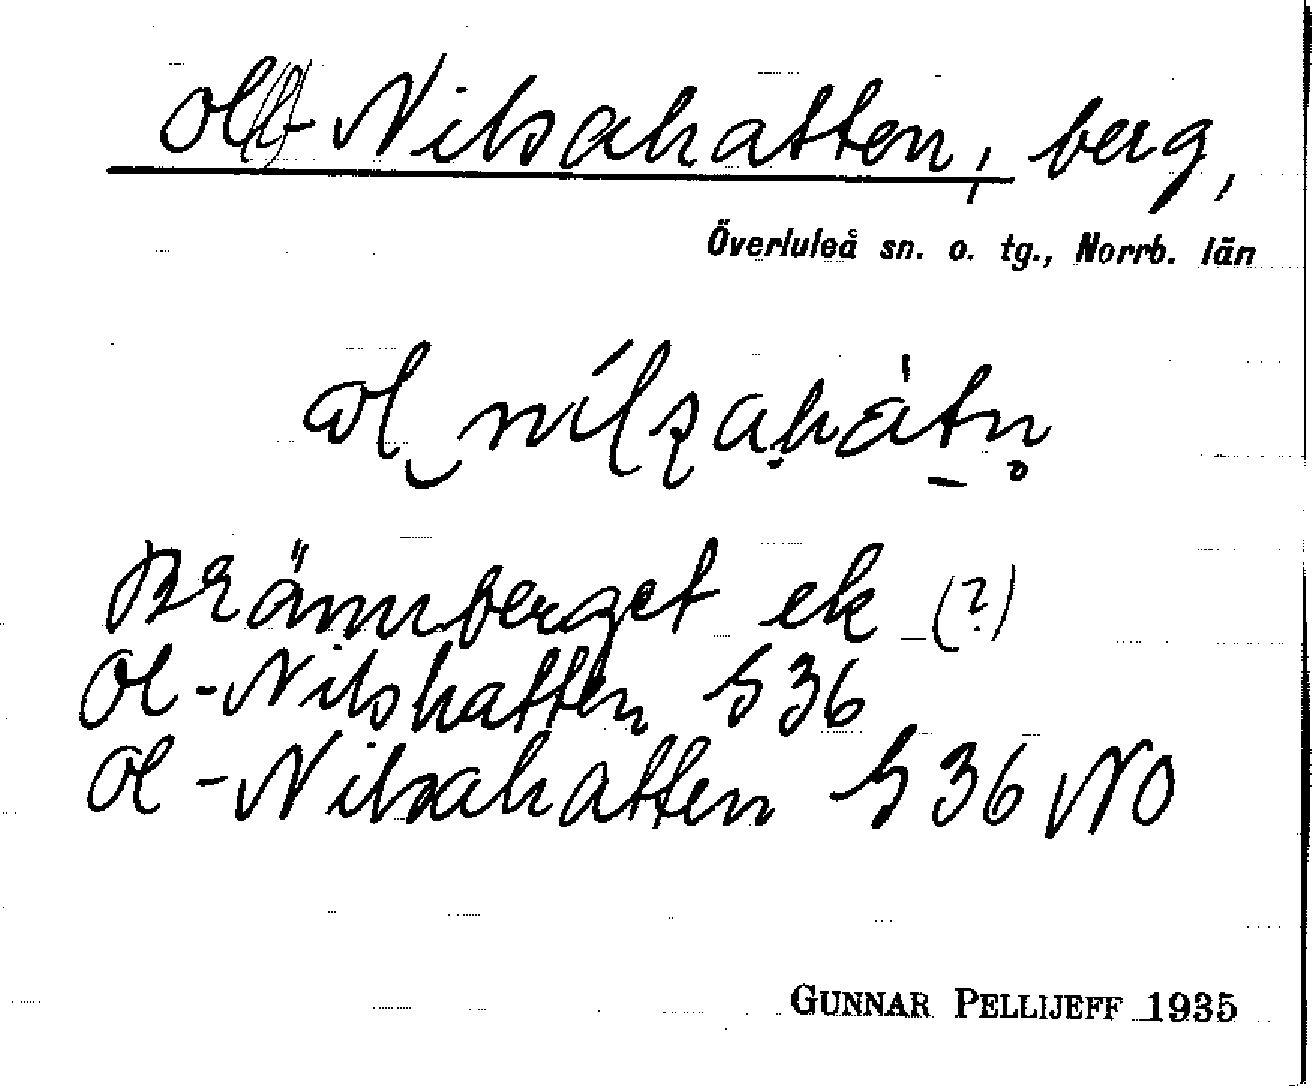 Ol-Nilsahatten, berg,
Överluleå sn. o. tg., Norrb. län
Brännberget ek (?)
Ol-Nilshatten S 36
Ol-Nilsahatten S 36 NO
GUNNAR PELLIJEFF 1935